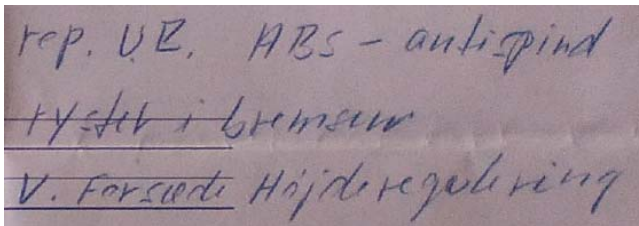 rep. U.R. ABS - antispind
ryster i bremsen
V. Forsæde Højderegulering